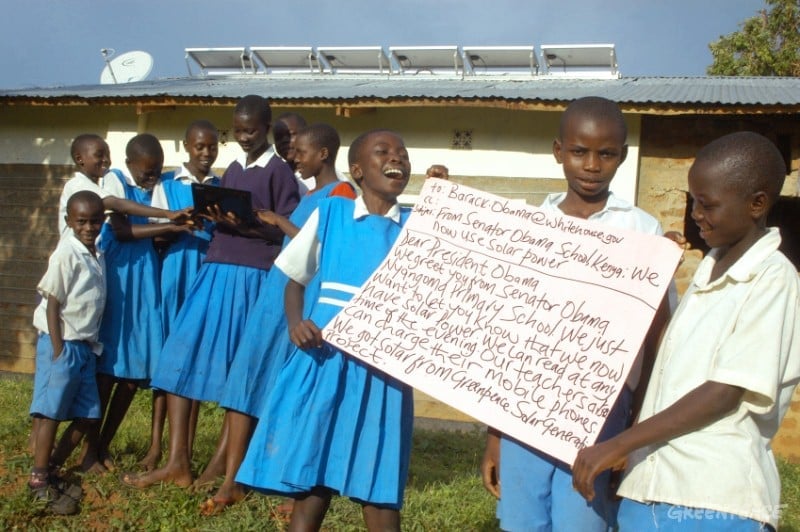 to: Barack.Obama@whitehouse.gov
cc:
Subject: From Senator Obama School Kenya: We
now use solar power
Dear President Obama
We greet you from Senator Obama
Nyangoma Primary School. We just
want to let you know that we now
have solar power. We can read at any
time of the evening. Our teachers also
can charge their mobile phones.
We got solar from Greenpeace Solar Generation
Project.
GREENPEACE